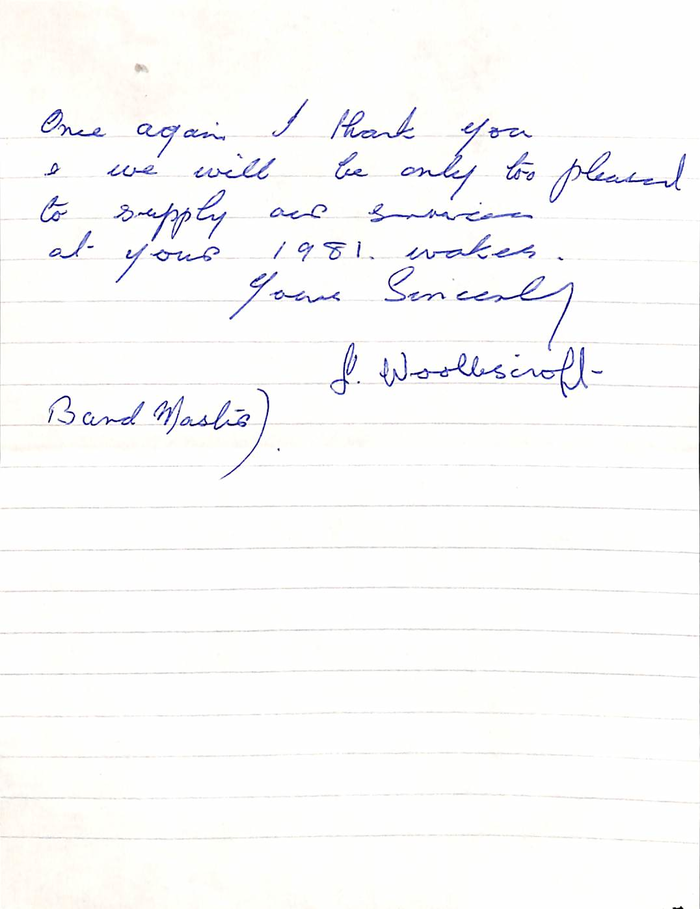 Once again I thank you
& we will be only too pleased
to supply our services
at your 1981. wakes.
Yours Sincerely
Woolliscroft
Band Master)